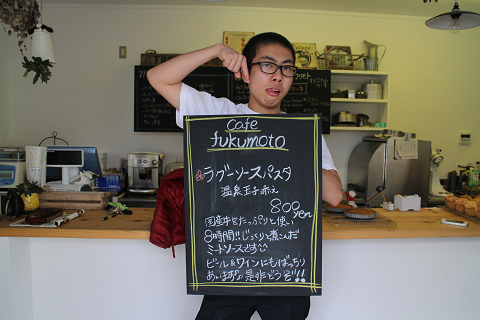 cafe
fukumoto
ラグーソースパスタ
温泉玉子添え
800yen
国産牛をたっぷりと使い
8時間!!じっくりと煮こんだ
ミートソースです
ビール&ワインにもばっちり
あいます 是非どうぞ!!